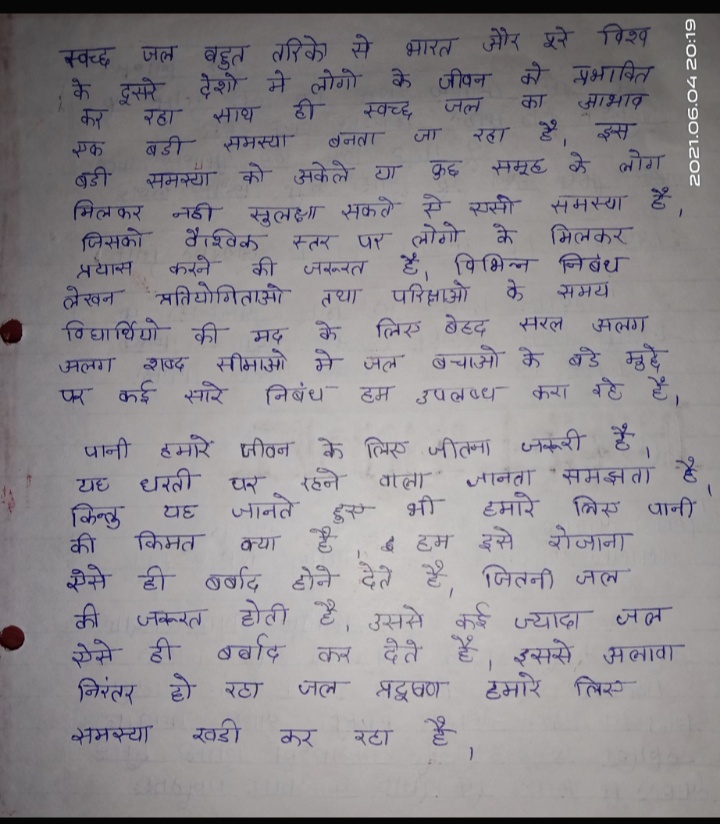 स्वच्छ जल बहुत तरिके से भारत और पूरे विश्व
के दूसरे देशो मे लोगो के जीवन को प्रभावित
कर रहा साथ ही स्वच्छ जल का आभाव
एक बडी समस्या बनता जा रहा है, इस
बडी समस्या को अकेले या कुछ समूह के लोग
मिलकर नही सुलझा सकते ये एसी समस्या है,
जिसको वैश्विक स्तर पर लोगो के मिलकर
प्रयास करने की जरूरत है, विभिन्न निबंध
लेखन प्रतियोगिताओ तथा परिक्षाओ के समय
विद्यार्थियो की मद के लिए बेहद सरल अलग
अलग शब्द सीमाओ मे जल बचाओ के बडे मुद्दे
पर कई सारे निबंध हम उपलब्ध करा रहे है,
पानी हमारे जीवन के लिए जीतना जरूरी है,
यह धरती पर रहने वाला जानता समझता है,
किन्तु यह जानते हुए भी हमारे लिए पानी
की किमत क्या है, हम इसे रोजाना
ऐसे ही बर्बाद होने देते है, जितनी जल
की जरूरत होती है, उससे कई ज्यादा जल
ऐसे ही बर्बाद कर देते है, इससे अलावा
निरंतर हो रहा जल प्रदूषण हमारे लिए
समस्या खडी कर रहा है,
2021.06.04 20:19